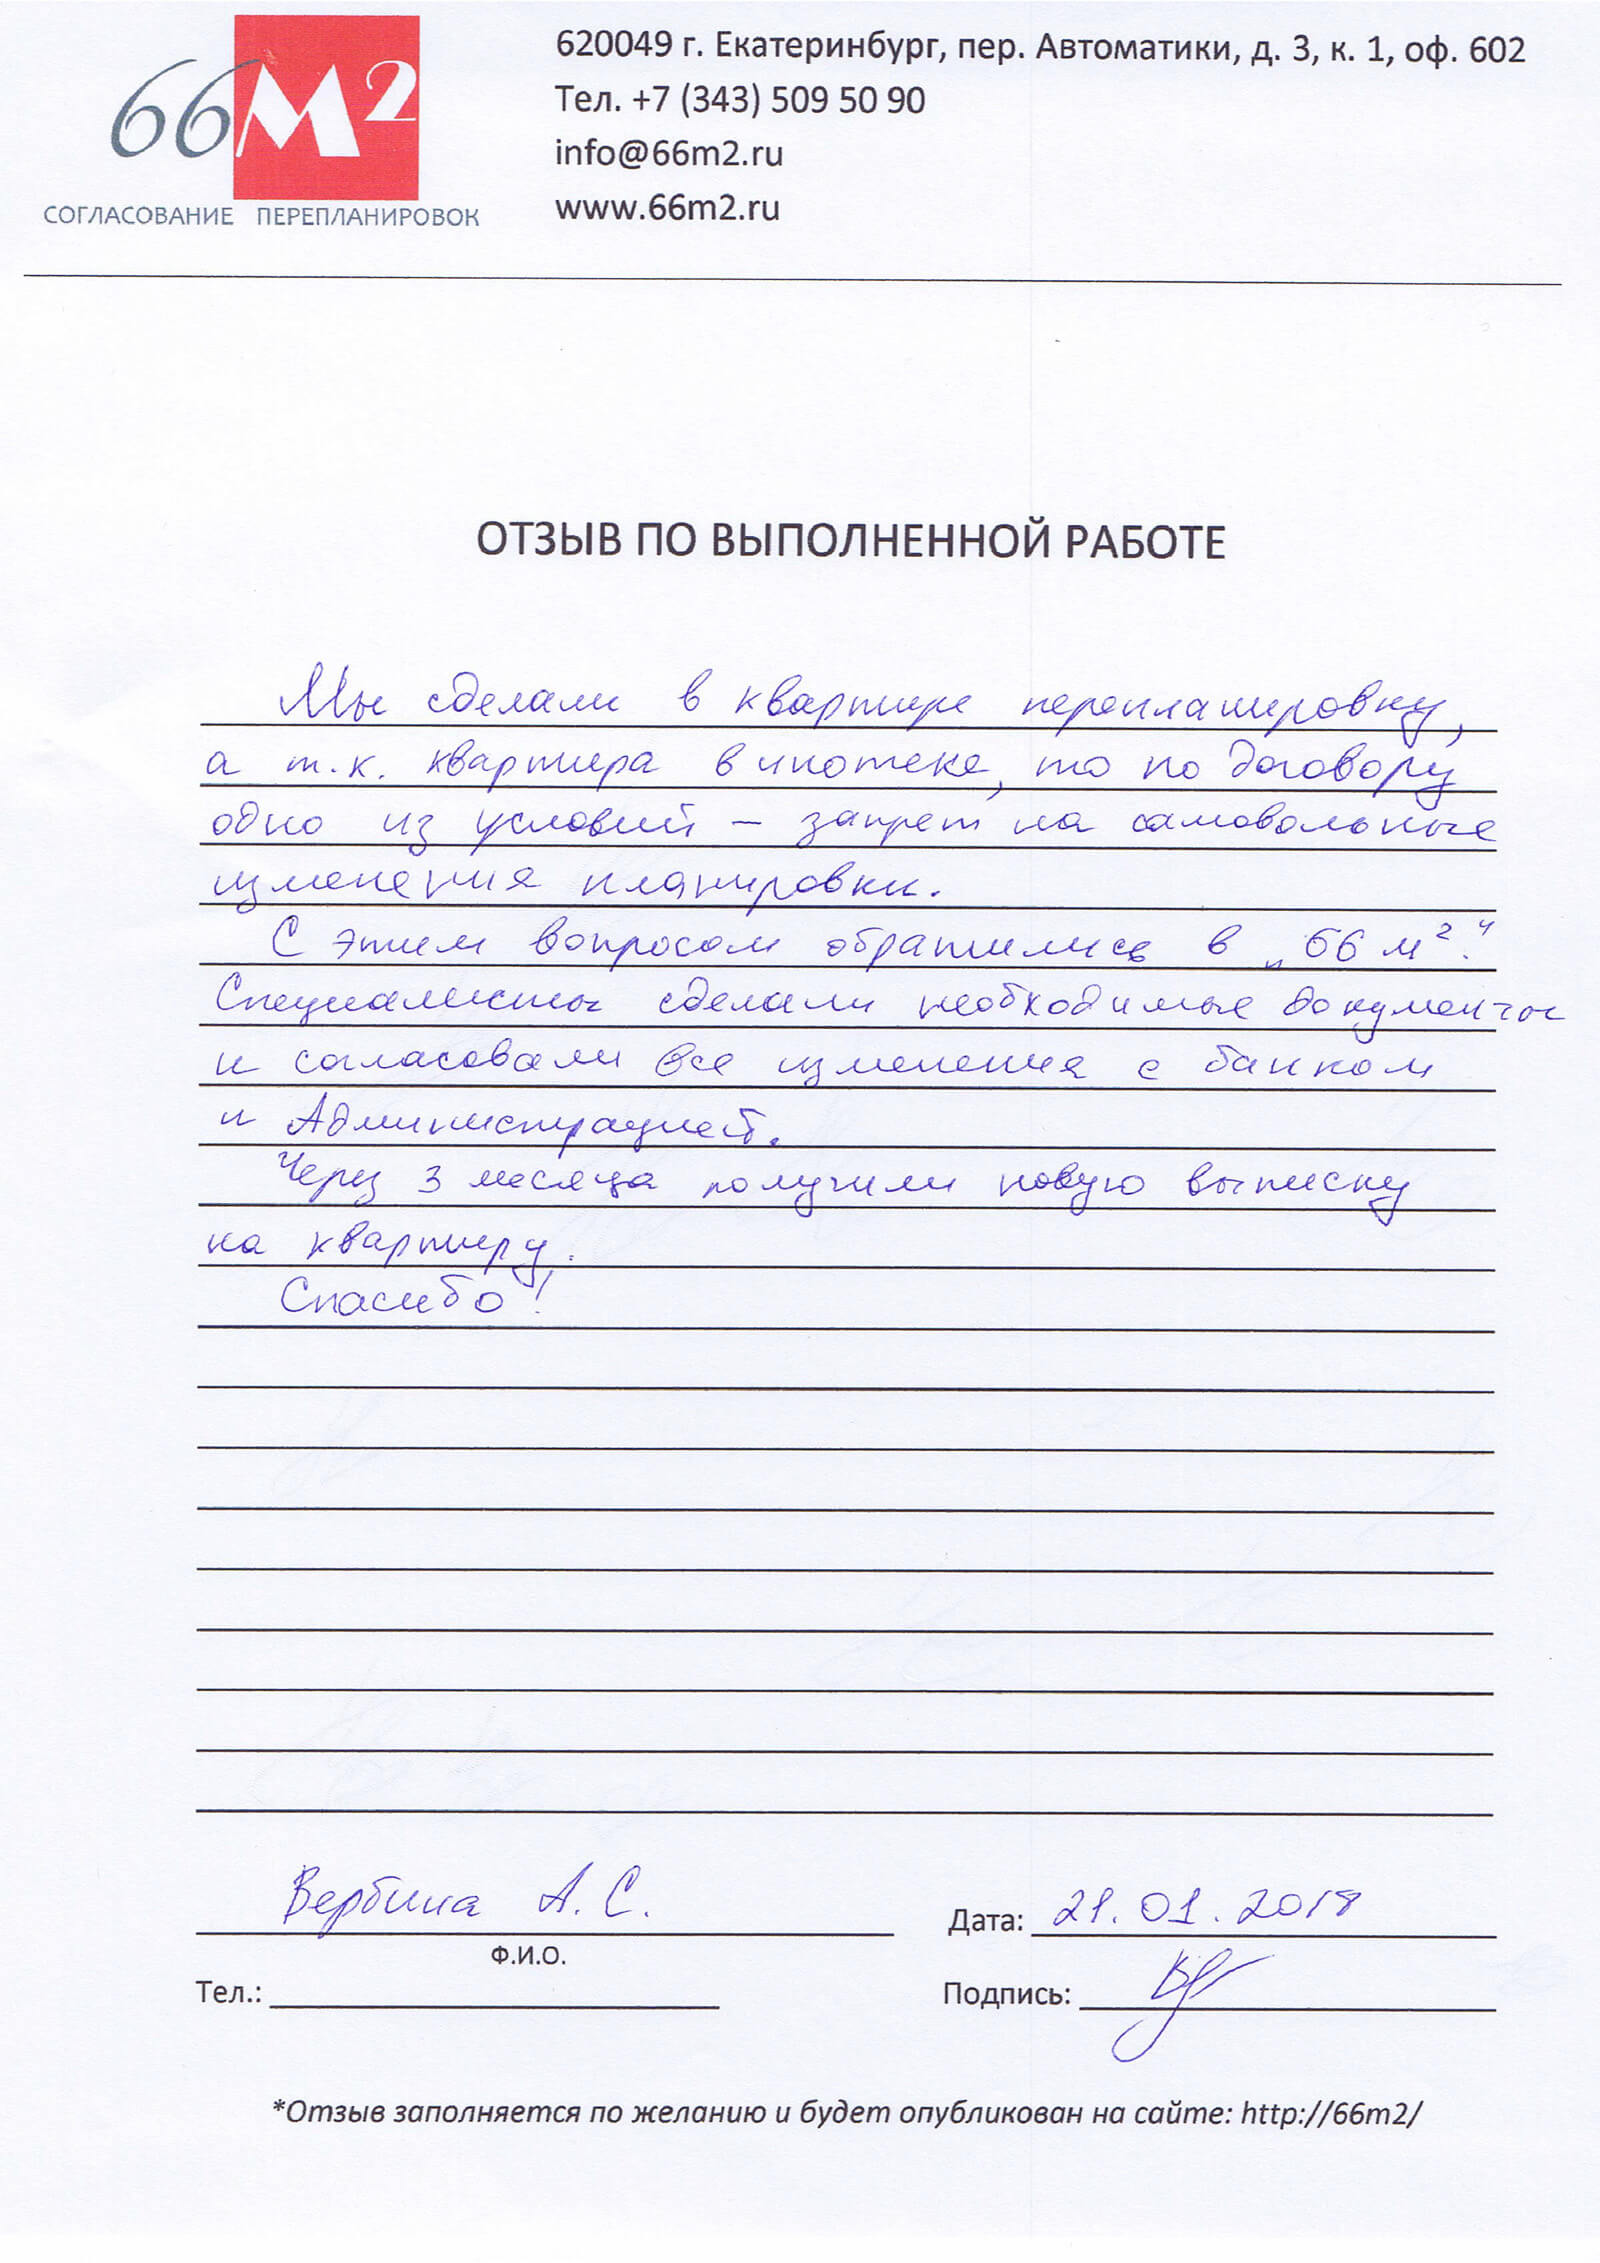 66М2
СОГЛАСОВАНИЕ ПЕРЕПЛАНИРОВОК
620049 г. Екатеринбург, пер. Автоматики, д. 3, к. 1, оф. 602
Тел. +7 (343) 509 50 90
info@66m2.ru
www.66m2.ru
ОТЗЫВ ПО ВЫПОЛНЕННОЙ РАБОТЕ
Мы сделали в квартире перепланировку,
а т.к. квартира в ипотеке, то по договору
одно из условий – запрет на самовольные
изменения планировки.
С этим вопросом обратились в „66 м²“.
Специалисты сделали необходимые документы
и согласовали все изменения с банком
и Администрацией.
Через 3 месяца получили новую выписку
на квартиру.
Спасибо!
Вербина А. С.
Ф.И.О.
Дата: 21.01.2018
Тел.:
Подпись:
*Отзыв заполняется по желанию и будет опубликован на сайте: http://66m2/